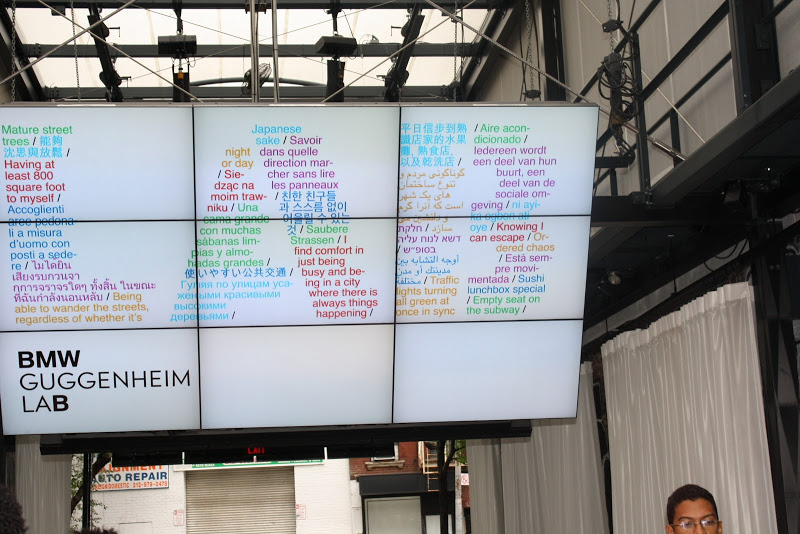 Mature street
trees / 能夠
沈思與放鬆 /
Having at
least 800
square foot
to myself /
Accoglienti
aree pedona-
li a misura
d'uomo con
posti a sede-
re / ไม่ได้ยิน
เสียงรบกวนจา
กการจราจรใดๆ ทั้งสิ้น ในขณะ
ที่ฉันกำลังนอนหลับ / Being
able to wander the streets,
regardless of whether it's
night
or day
/ Sie-
dząc na
moim traw-
niku / Una
cama grande
con muchas
sábanas lim-
pias y almo-
hadas grandes /
使いやすい公共交通 /
Гуляя по улицам уса-
жеными красивыми
высокими
деревьями /
Japanese
sake / Savoir
dans quelle
direction mar-
cher sans lire
les panneaux
/ 친한 친구들
과 스스럼 없이
어울릴 수 있는
것 / Saubere
Strassen / I
find comfort in
just being
busy and be-
ing in a city
where there is
always things
happening /
平日信步到熟
識店家的水果
攤, 熟食店,
以及乾洗店 /
گوناگونی مردم و
تنوع ساختمان
های یک شهر
است که آنرا گرم
سازد /
חלקת
דשא לנוח עליה
בסופ״ש /
أوجه التشابه بين
مدينتك أو مدن
مختلفة / Traffic
lights turning
all green at
once in sync
/ Aire acon-
dicionado /
Iedereen wordt
een deel van hun
buurt, een
deel van de
sociale om-
geving / ni ayi-
ka ogbon ati
oye / Knowing I
can escape / Or-
dered chaos
/ Està sem-
pre movi-
mentada / Sushi
lunchbox special
/ Empty seat on
the subway /
BMW
GUGGENHEIM
LAB
ALIGNMENT
AUTO REPAIR